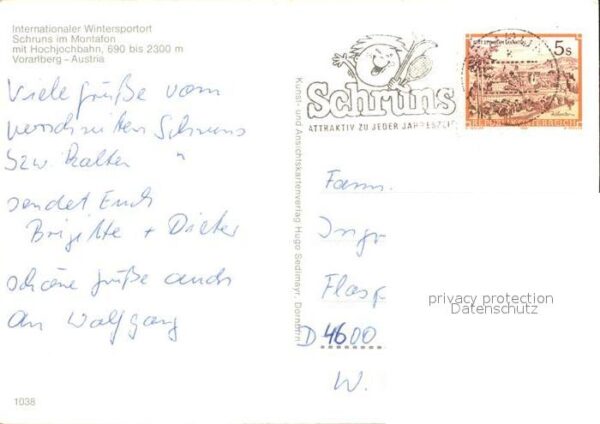 Internationaler Wintersportort
Schruns im Montafon
mit Hochjochbahn, 690 bis 2300 m
Vorarlberg - Austria
Viele Grüße vom
verschneiten Schruns
bzw. kalten "
sendet Euch
Brigitte + Dieter
schöne Grüße auch
an Wolfgang
1038
Kunst- und Ansichtskartenverlag Hugo Sedlmayr, Dornbirn
Schruns
ATTRAKTIV ZU JEDER JAHRESZEIT
5s
REPUBLIK ÖSTERREICH
Fam.
Ingo
D 4600
W.
privacy protection
Datenschutz